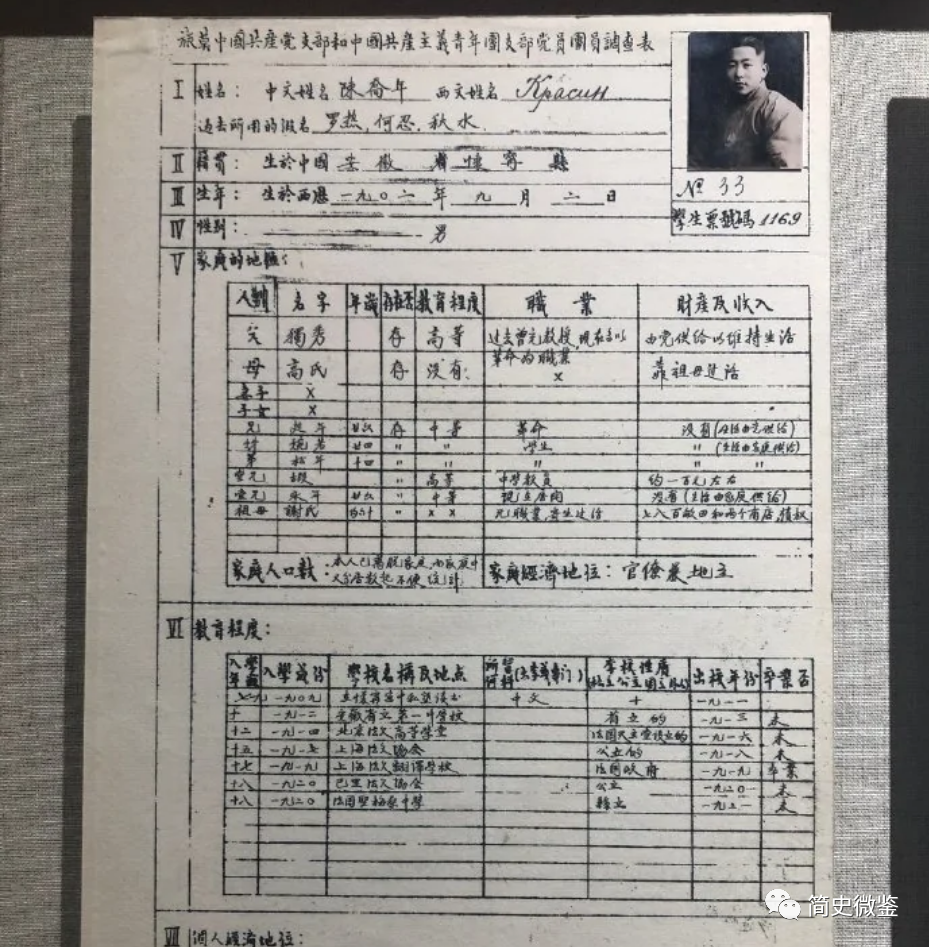 旅莫中國共產党支部和中國共產主義青年團支部党員團員調查表
I 姓名： 中文姓名 陳喬年 西文姓名 Красин
過去所用的假名 罗熱，何忍，秋水．
II 籍貫： 生於中國 安徽 省 懷寧 縣
III 生年： 生於西歷 一九〇二 年 九 月 二 日
IV 性別： 男
№ 33
學生票號碼 1169
V 家庭的地位：
人別 名字 年歲 存在否 教育程度 職業 財產及收入
父 獨秀 存 高等 过去曾充教授，現在以革命為職業 由党供给以維持生活
母 高氏 存 没有． x 靠祖母过活
妻子 x
子女 x
兄 延年 廿六 存 中等 革命 没有(生活由党供给)
廿四 " " 学生 " (生活由家庭供给)
弟 松年 十四 " " " " "
堂兄 " 高等 中学教員 约一百元左右
堂兄 永年 廿六 " 中等 没有(生活由家庭供给)
祖母 謝氏 " x x
家庭人口數： 本人已离脱家庭
家庭經濟地位： 官僚兼地主
VI 教育程度：
入學年歲 入學年份 學校名稱及地点 所習何科 學校性质 出校年份 卒業否
一九〇九 中文 一九一一
十一 一九一二 安徽省立第一中学校 省立的 一九一三 未
十二 一九一四 北京法文高等学堂 一九一六 未
十五 一九一七 上海法文協会 公立的 一九一八 未
十七 一九一九 上海法文翻译学校 法国政府 一九一九 卒業
十八 一九二〇 巴里法文協会 公立 一九二〇 未
十八 一九二〇 縣立 一九二一 未
VII 個人經濟地位：
简史微鉴